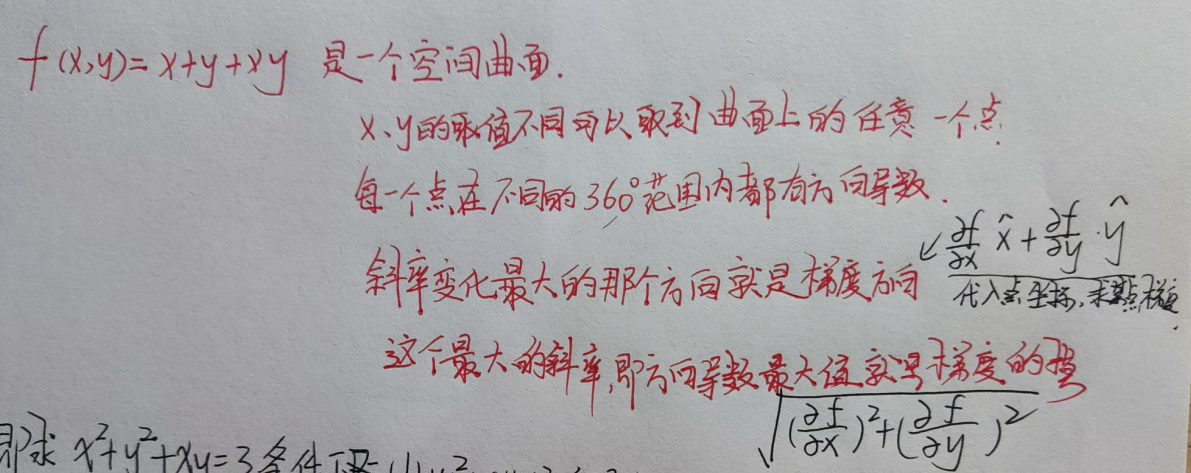 f(x,y)=x+y+xy 是一个空间曲面.
x、y的取值不同可以取到曲面上的任意一个点
每一个点在不同的360°范围内都有方向导数.
斜率变化最大的那个方向就是梯度方向 ↙ ∂f/∂x x̂ + ∂f/∂y · ŷ
代入点坐标,求某点梯度
这个最大的斜率,即方向导数最大值就是梯度的模
√((∂f/∂x)²+(∂f/∂y)²)
即求 x²+y²+xy=3条件下